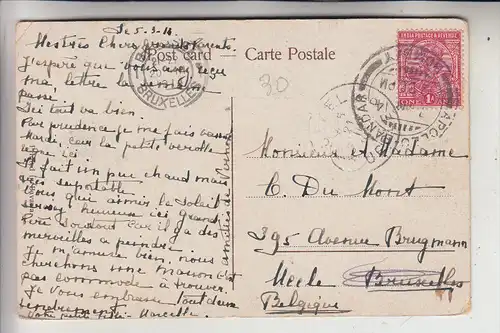 Le 5-3-14.
Mes très Chers grands Parents.
J'espère que vous avez reçu
ma lettre la semaine
passé.
Ici tout va bien.
Par prudence je me fais
Mardi, car la petite verolle
règne ici
Il fait un peu chaud mais
très suportable
Vous qui aimez le soleil
seriez heureux ici Grand
Père Soudout car il y a des
merveilles a peindre
Je m'amuse bien, nous
cherchons une maison c'est
pas commode à trouver.
Je Vous embrasse tout deux
tendrement
Votre petit fils Marcelle.
Post card — Carte Postale
BRUXELLES
30
INDIA POSTAGE & REVENUE
ONE 1A
Monsieur et Madame
C. Du Mont
395 Avenue Brugmann
Uccle Bruxelles
Belgique